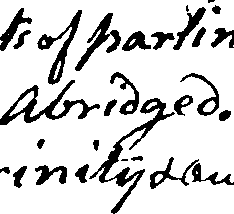 ts of partin
Abridged.
rinity & ou